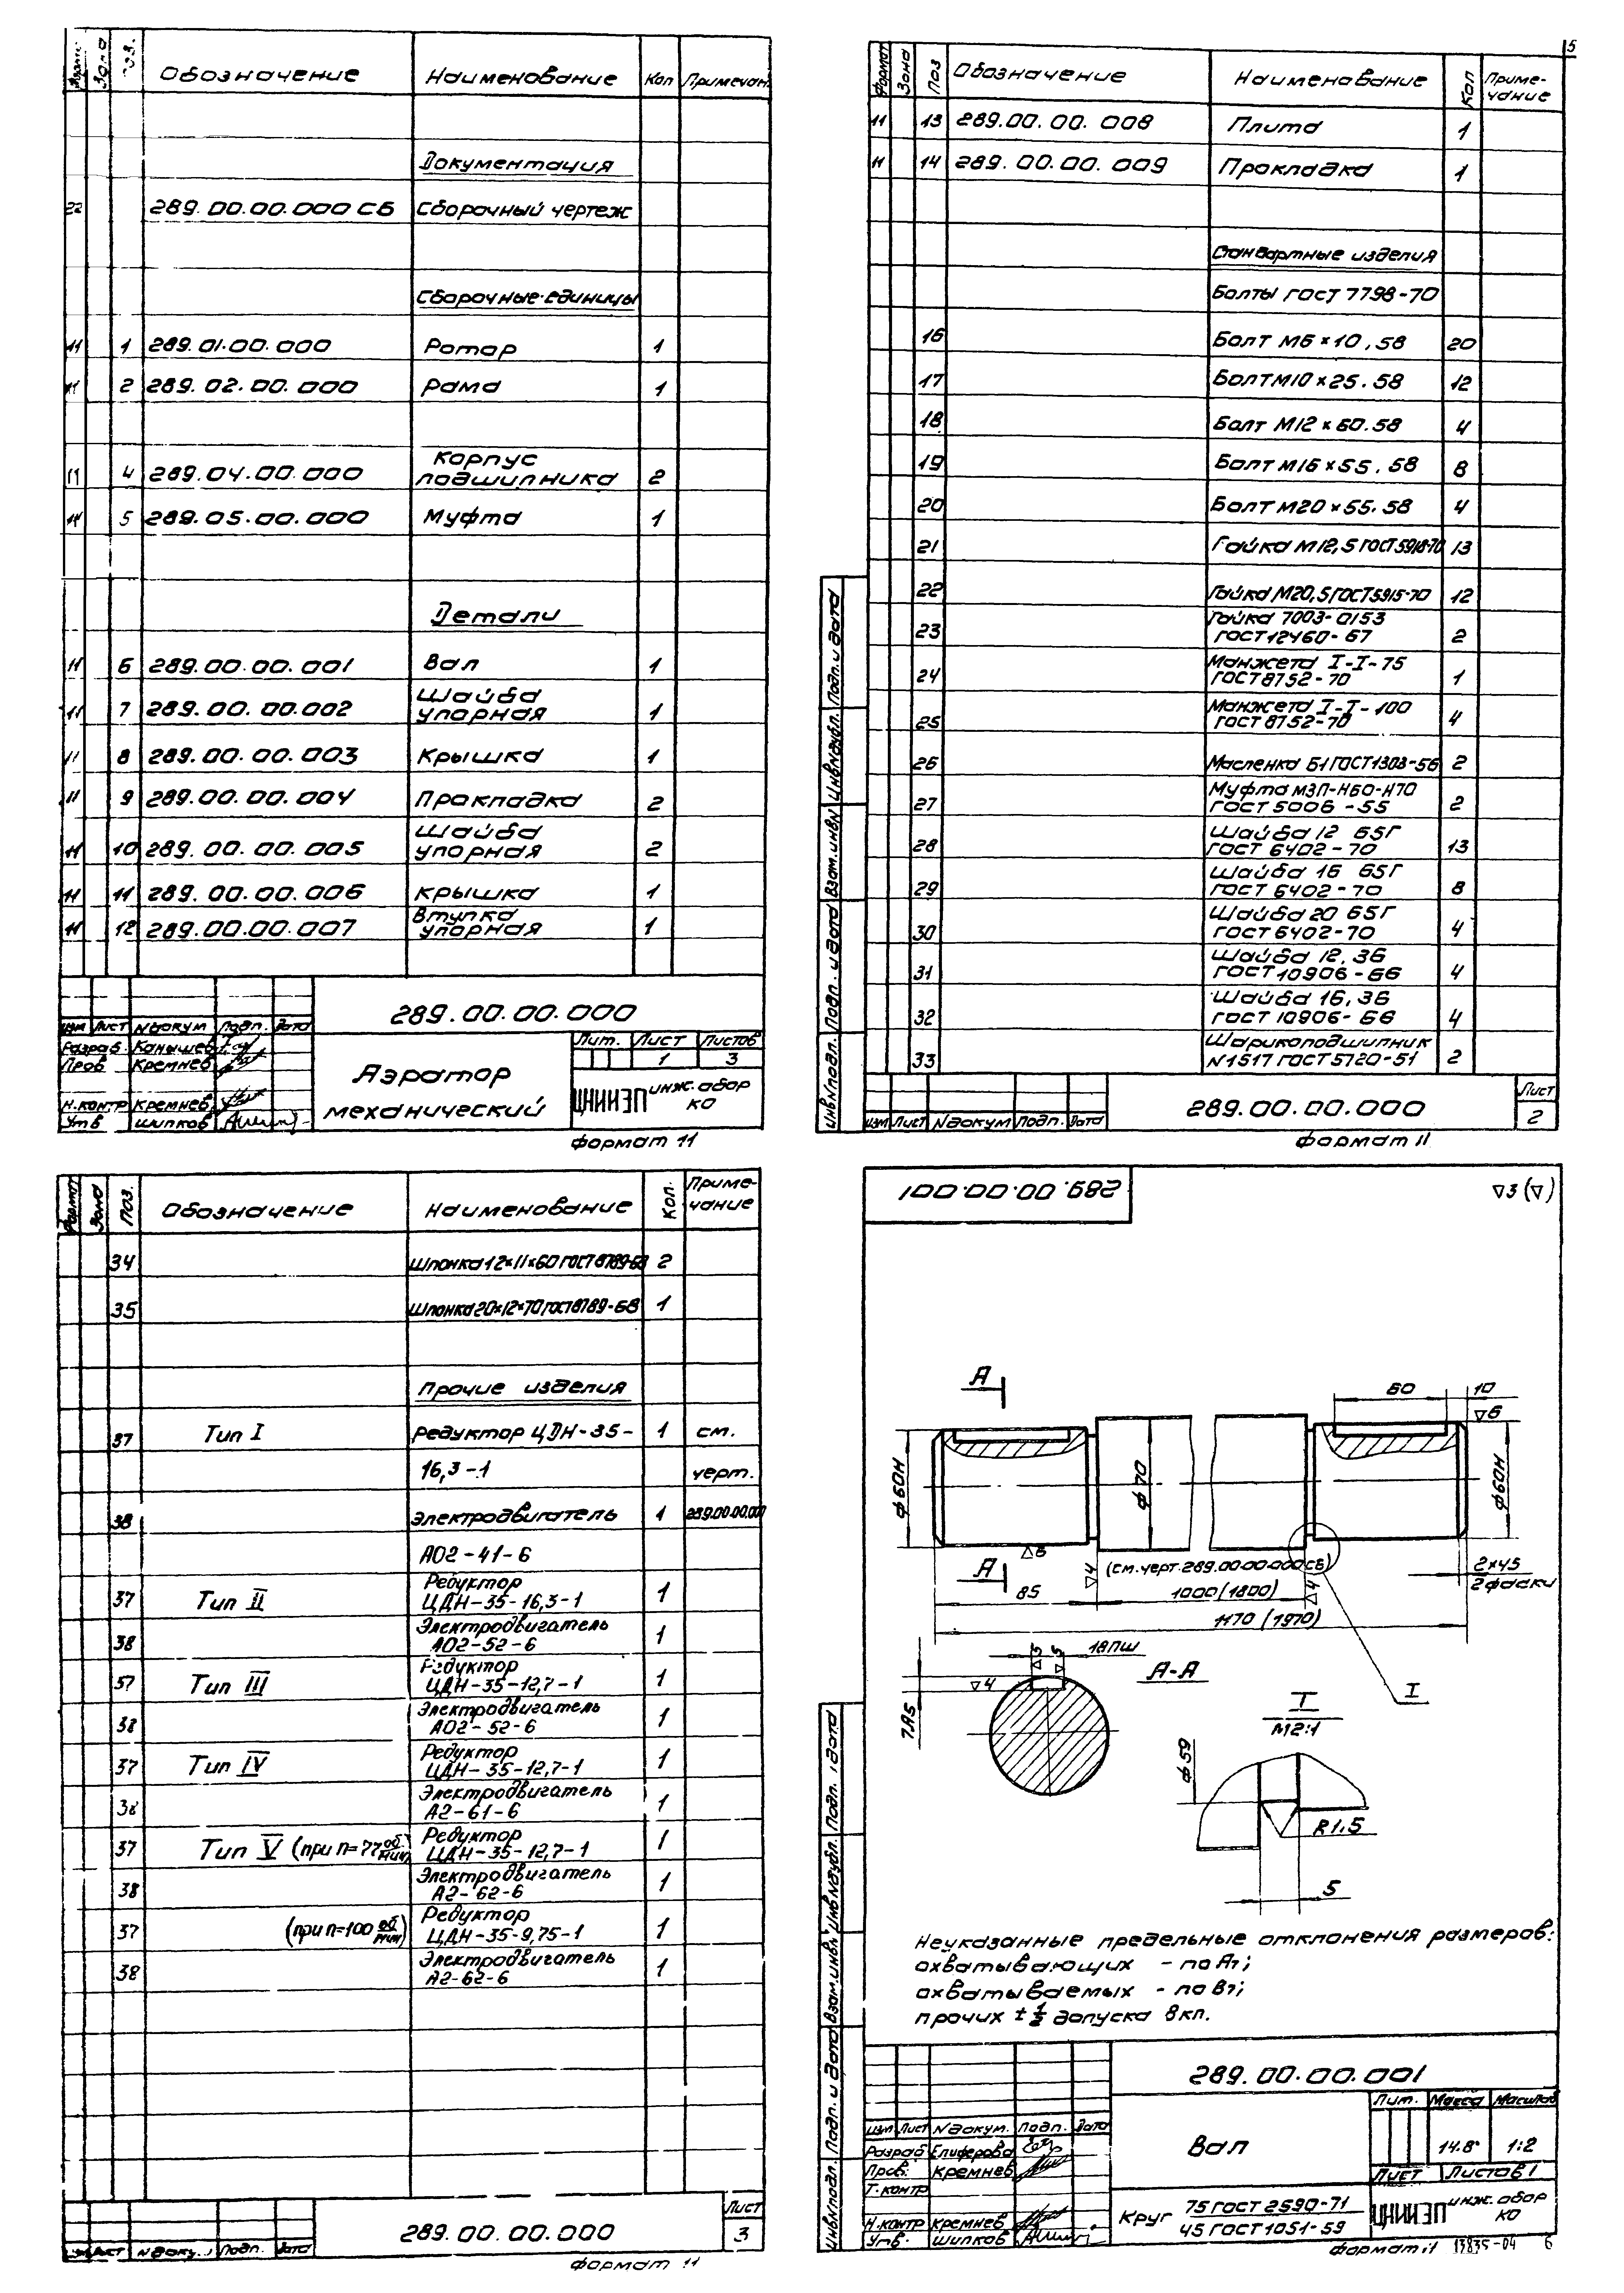 Формат Зона Поз. Обозначение Наименование Кол Примечан.
Документация
22 289.00.00.000 СБ Сборочный чертеж
Сборочные единицы
11 1 289.01.00.000 Ротор 1
11 2 289.02.00.000 Рама 1
Корпус
11 4 289.04.00.000 подшипника 2
11 5 289.05.00.000 Муфта 1
Детали
11 6 289.00.00.001 Вал 1
Шайба
11 7 289.00.00.002 упорная 1
11 8 289.00.00.003 Крышка 1
11 9 289.00.00.004 Прокладка 2
Шайба
11 10 289.00.00.005 упорная 2
11 11 289.00.00.006 Крышка 1
Втулка
11 12 289.00.00.007 упорная 1
289.00.00.000
Изм Лист N докум Подп. Дата
Разраб. Канышев
Пров Кремнев
Н.контр Кремнев
Утв Шипков
Аэратор
механический
Лит. Лист Листов
1 3
ЦНИИЭП инж. обор
КО
Формат 11
5
Формат Зона Поз Обозначение Наименование Кол Приме-
чание
11 13 289.00.00.008 Плита 1
11 14 289.00.00.009 Прокладка 1
Стандартные изделия
Болты ГОСТ 7798-70
16 Болт М6×10,58 20
17 Болт М10×25.58 12
18 Болт М12×60.58 4
19 Болт М16×55.58 8
20 Болт М20×55.58 4
21 Гайка М12,5 ГОСТ 5918-70 13
22 Гайка М20,5 ГОСТ 5915-70 12
Гайка 7003-0153
23 ГОСТ 12460-67 2
Манжета I-I-75
24 ГОСТ 8752-70 1
Манжета I-I-100
25 ГОСТ 8752-70 4
26 Масленка Б1 ГОСТ 1303-56 2
Муфта МЗП-Н60-Н70
27 ГОСТ 5006-55 2
Шайба 12 65Г
28 ГОСТ 6402-70 13
Шайба 16 65Г
29 ГОСТ 6402-70 8
Шайба 20 65Г
30 ГОСТ 6402-70 4
Шайба 12,36
31 ГОСТ 10906-66 4
Шайба 16,36
32 ГОСТ 10906-66 4
Шарикоподшипник
33 N1517 ГОСТ 5720-51 2
Инв N подл. Подп. и дата Взам. инв N Инв N дубл. Подп. и дата
Изм Лист N докум Подп. Дата
289.00.00.000
Лист
2
Формат 11
Формат Зона Поз. Обозначение Наименование Кол. Приме-
чание
34 Шпонка 12×11×60 ГОСТ 8789-68 2
35 Шпонка 20×12×70 ГОСТ 8789-68 1
Прочие изделия
37 Тип I Редуктор ЦДН-35- 1 см.
16,3-1 черт.
38 Электродвигатель 1 289.00.00.000
АО2-41-6
Редуктор
37 Тип II ЦДН-35-16,3-1 1
Электродвигатель
38 АО2-52-6 1
Редуктор
37 Тип III ЦДН-35-12,7-1 1
Электродвигатель
38 АО2-52-6 1
Редуктор
37 Тип IV ЦДН-35-12,7-1 1
Электродвигатель
38 А2-61-6 1
37 Тип V (при n=77 об/мин) Редуктор 1
ЦДН-35-12,7-1
Электродвигатель
38 А2-62-6 1
Редуктор
37 (при n=100 об/мин) ЦДН-35-9,75-1 1
Электродвигатель
38 А2-62-6 1
Изм Лист N докум. Подп. Дата
289.00.00.000
Лист
3
Формат 11
289.00.00.001
▽3 (▽)
А
60 10
▽6
ф60Н ф70 ф60Н
▽6
А 85 ▽4 (см. черт. 289.00.00.000 СБ) 2×45
1000 (1800) ▽4 2 фаски
1170 (1970)
▽5 ▽5 18ПШ
А-А
▽4
7А5
I
I
М2:1
ф59
R1,5
5
Неуказанные предельные отклонения размеров:
охватывающих - по А7;
охватываемых - по В7;
прочих ± 1/2 допуска 8 кл.
Инв N подл. Подп. и дата Взам. инв N Инв N дубл. Подп. и дата
289.00.00.001
Изм Лист N докум. Подп. Дата
Разраб Елиферова
Пров. Кремнев
Т.контр
Н.контр Кремнев
Утв. Шипков
Вал
Лит. Масса Масштаб
14.8 1:2
Лист Листов 1
Круг 75 ГОСТ 2590-71
45 ГОСТ 1051-59
ЦНИИЭП инж. обор
КО
Формат 11 13835-04 6